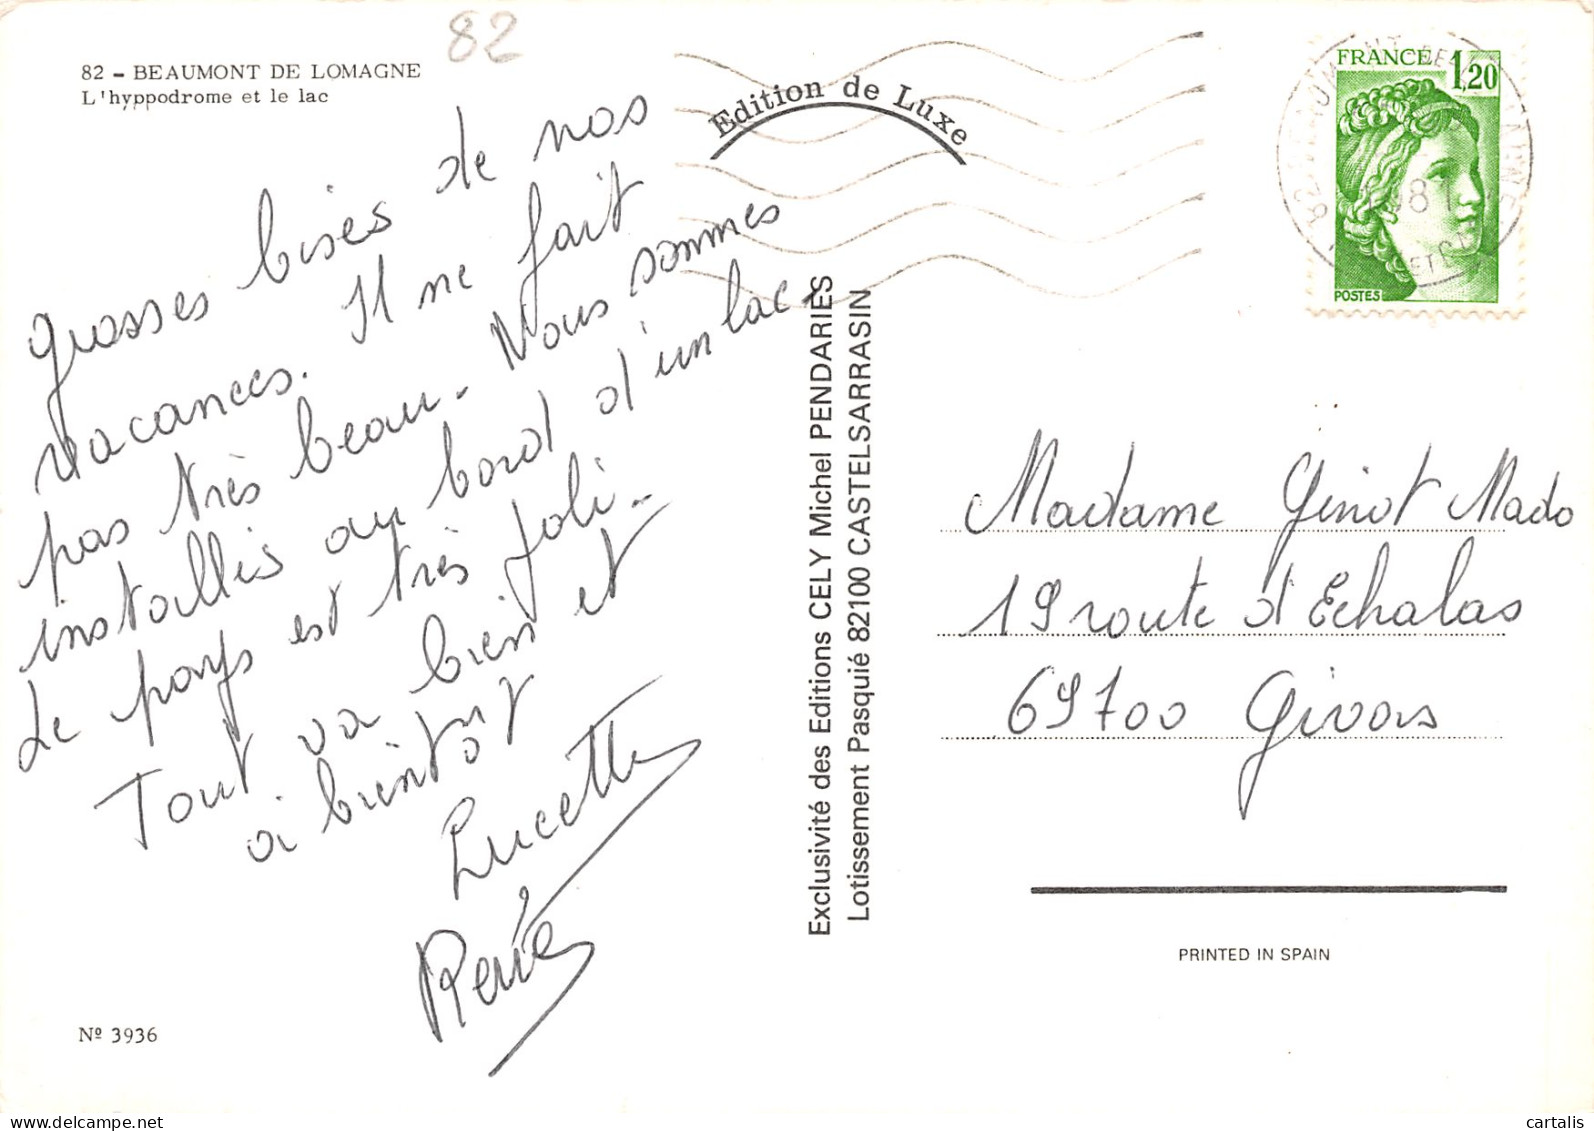 82
82 - BEAUMONT DE LOMAGNE
L'hyppodrome et le lac
Edition de Luxe
FRANCE 1,20
POSTES
grosses bises de nos
vacances. Il ne fait
pas très beau. Nous sommes
installés au bord d'un lac.
Le pays est très joli.
Tout va bien et
à bientôt
Lucette
René
Nº 3936
Exclusivité des Editions CELY Michel PENDARIES
Lotissement Pasquié 82100 CASTELSARRASIN
Madame Ginot Mado
19 route d'Echalas
69700 Givors
PRINTED IN SPAIN
cartalis